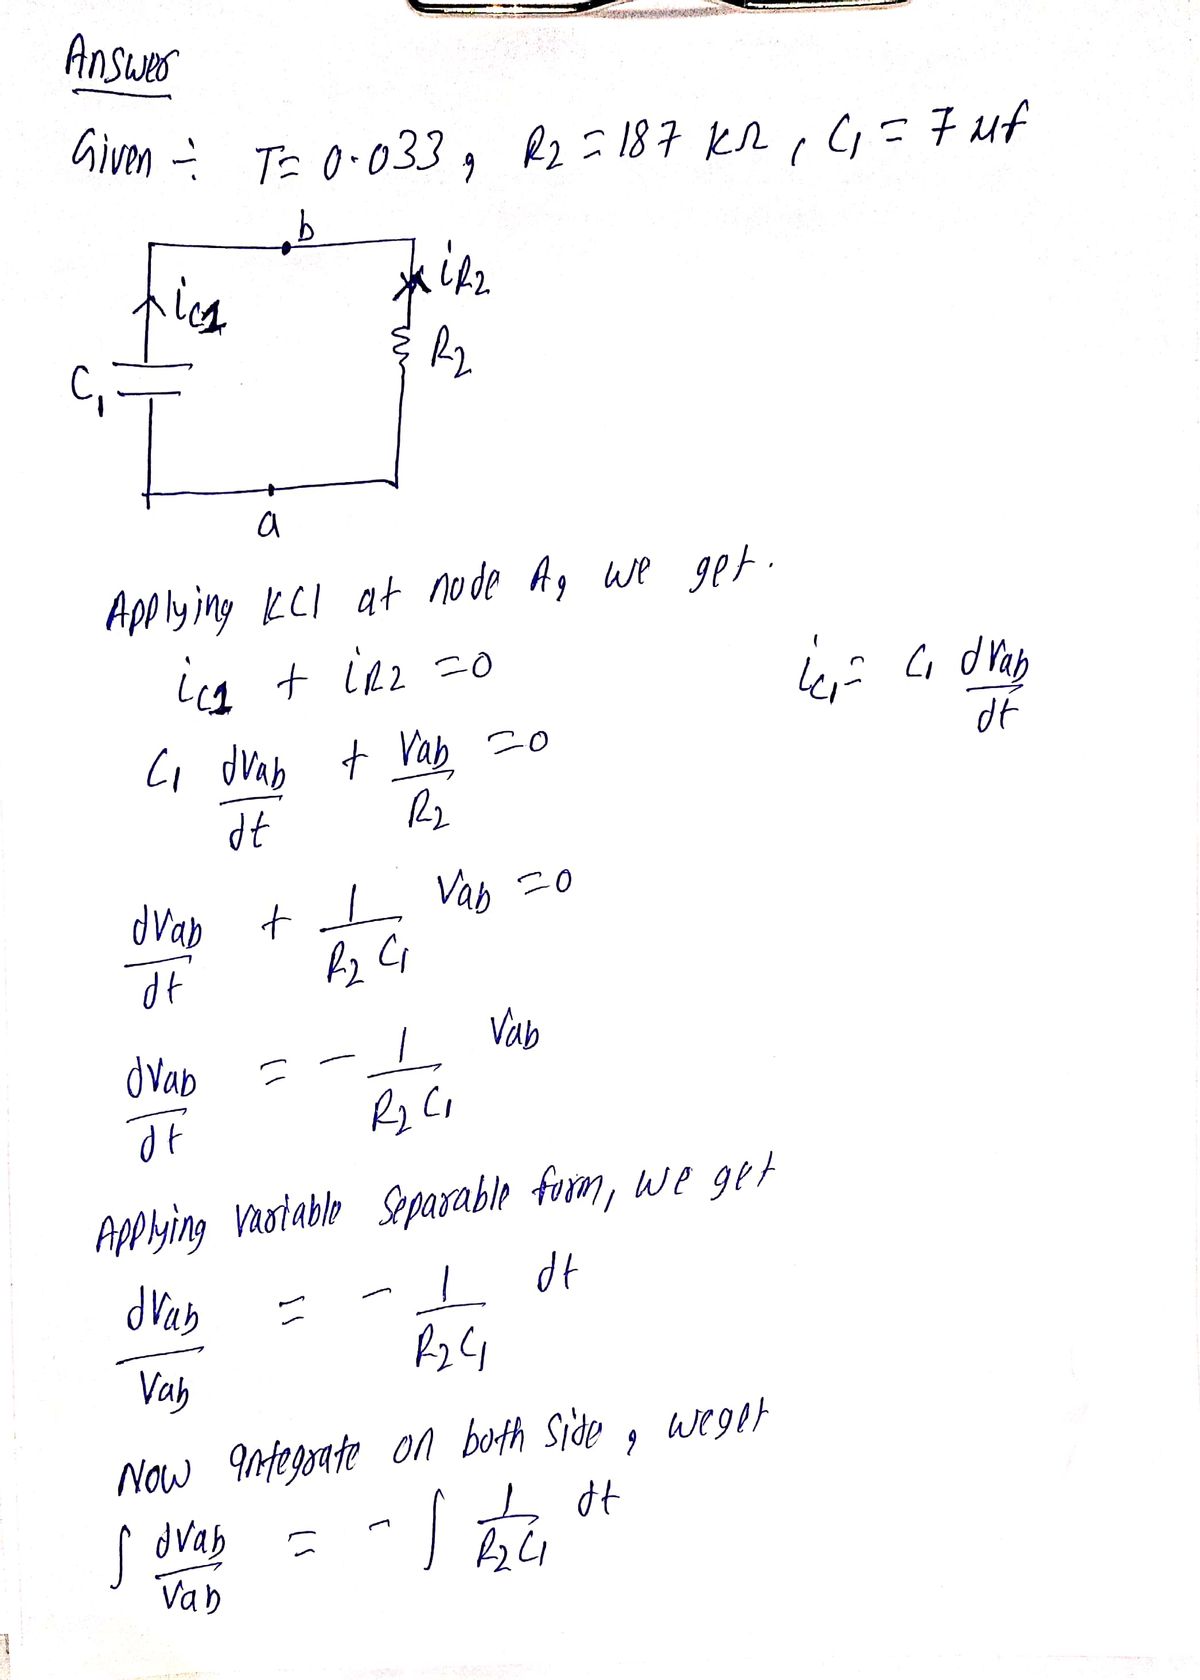 Answer
Given ÷ T= 0.033, R2 = 187 kΩ, C1 = 7 μf
b
iR2
ic1
R2
C1
a
Applying KCl at node A, we get.
ic1 + iR2 =0
ic1 = C1 dVab/dt
C1 dVab/dt + Vab/R2 =0
dVab/dt + 1/R2 C1 Vab =0
dVab/dt = - 1/R2 C1 Vab
Applying variable separable form, we get
dVab/Vab = - 1/R2C1 dt
Now integrate on both side, we get
∫ dVab/Vab = - ∫ 1/R2C1 dt